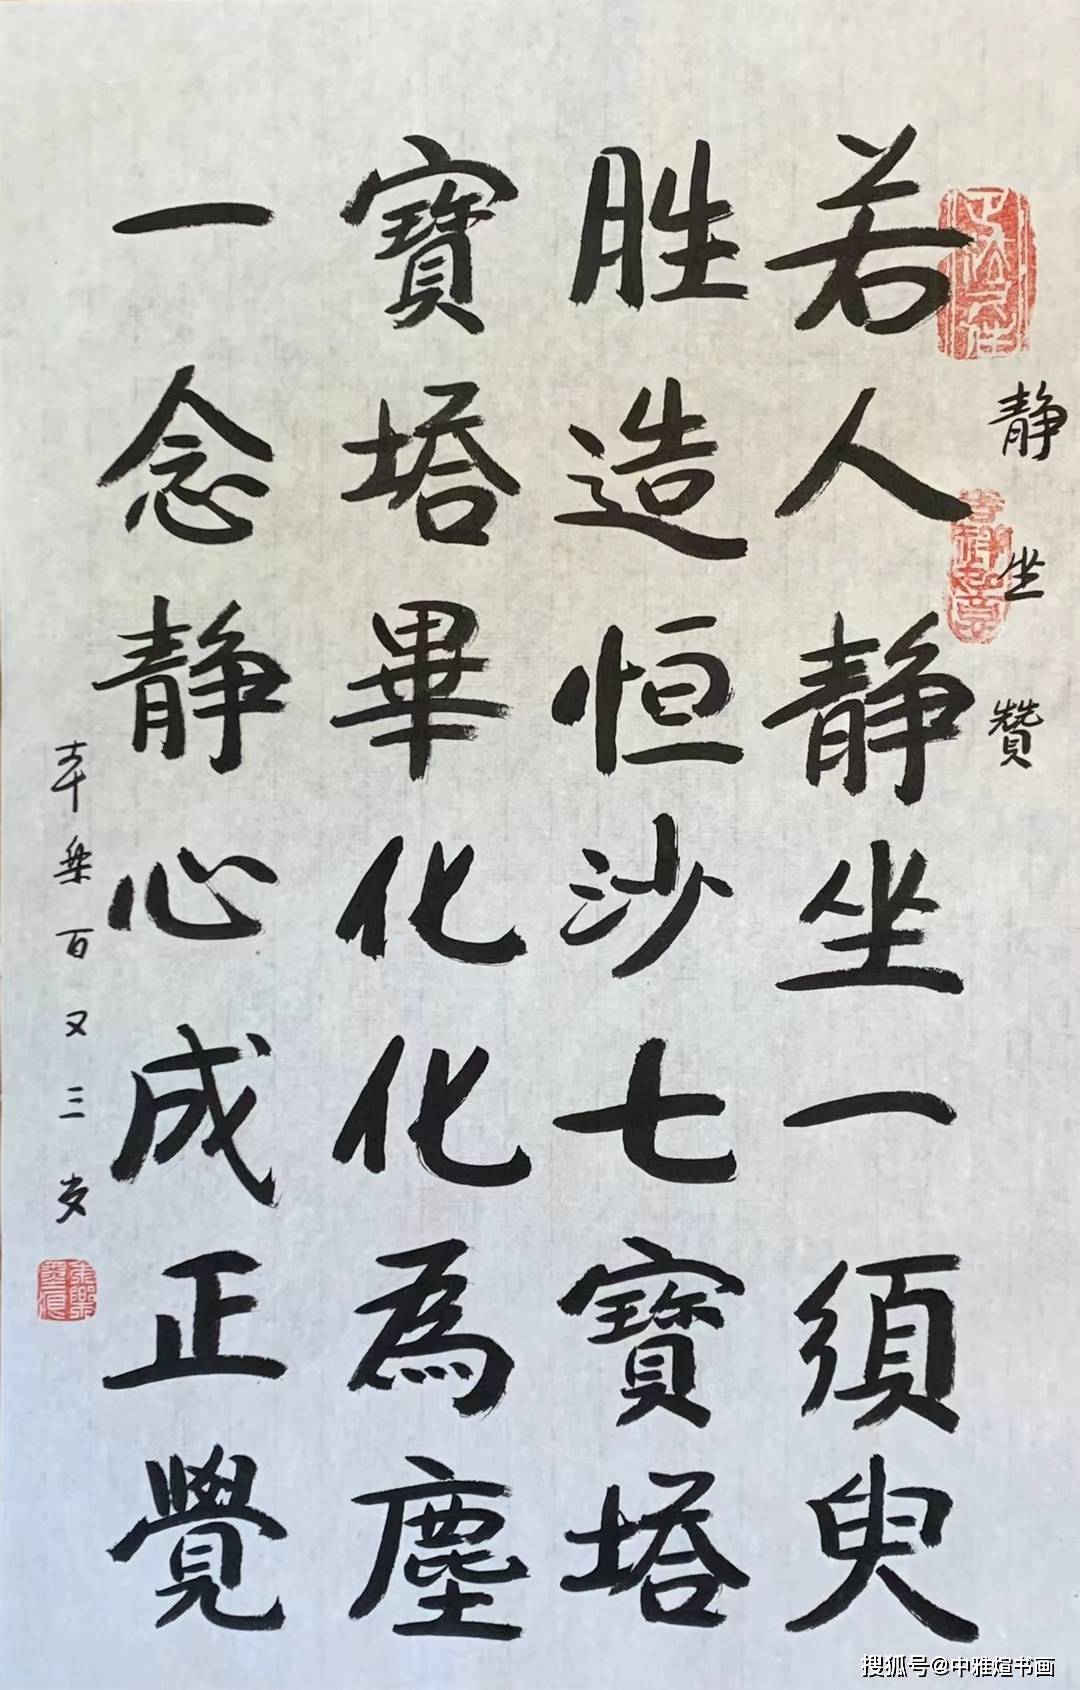 静坐贊
吉祥如意
若人静坐一須臾
胜造恒沙七寶塔
寶塔畢化化為塵
一念静心成正覺
百又三岁
搜狐号@中雅煊书画